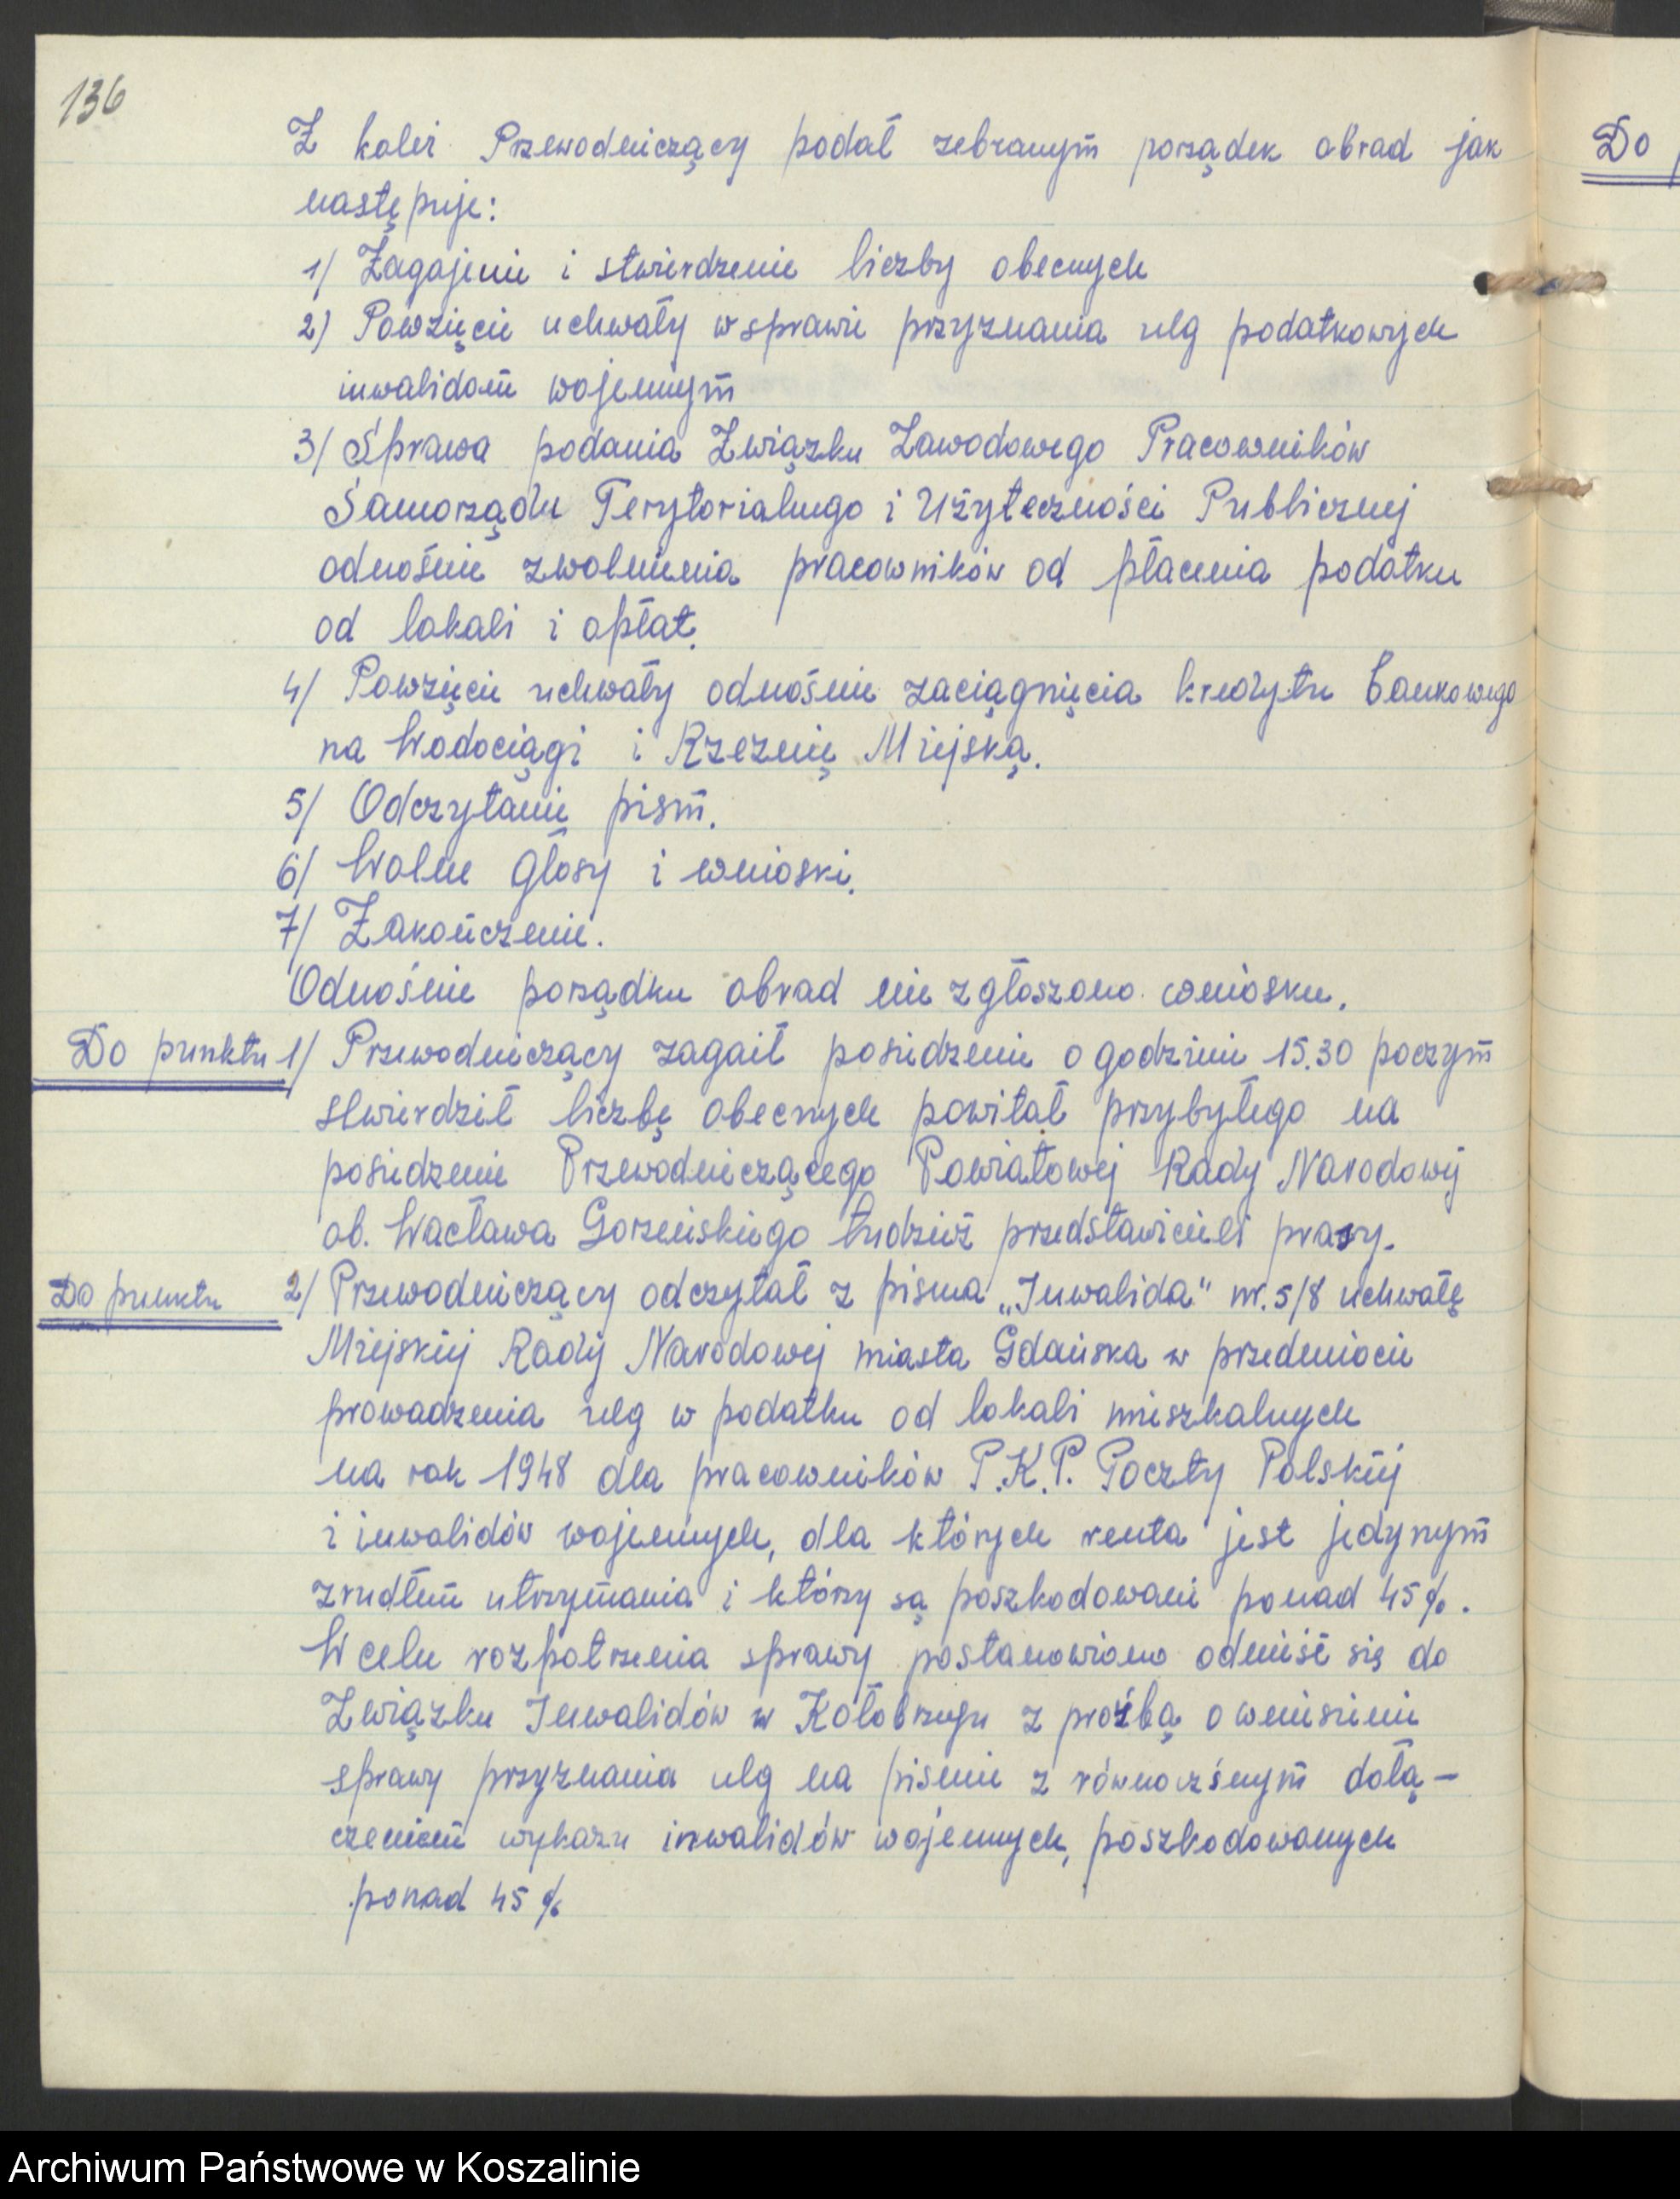 136
Z kolei Przewodniczący podał zebranym porządek obrad jak
następuje:
1/ Zagajenie i stwierdzenie liczby obecnych
2/ Powzięcie uchwały w sprawie przyznania ulg podatkowych
inwalidom wojennym
3/ Sprawa podania Związku Zawodowego Pracowników
Samorządu Terytorialnego i Użyteczności Publicznej
odnośnie zwolnienia pracowników od płacenia podatku
od lokali i opłat.
4/ Powzięcie uchwały odnośnie zaciągnięcia kredytu bankowego
na Wodociągi i Rzeźnię Miejską.
5/ Odczytanie pism.
6/ Wolne głosy i wnioski.
7/ Zakończenie.
Odnośnie porządku obrad nie zgłoszono wniosku.
Do punktu 1/ Przewodniczący zagaił posiedzenie o godzinie 15.30 poczym
stwierdził liczbę obecnych powitał przybyłego na
posiedzenie Przewodniczącego Powiatowej Rady Narodowej
ob. Wacława Gorzeńskiego tudzież przedstawicieli prasy.
Do punktu 2/ Przewodniczący odczytał z pisma „Inwalida" nr. 5/8 uchwałę
Miejskiej Rady Narodowej miasta Gdańska w przedmiocie
prowadzenia ulg w podatku od lokali mieszkalnych
na rok 1948 dla pracowników P.K.P. Poczty Polskiej
i inwalidów wojennych, dla których renta jest jedynym
zrudłem utrzymania i którzy są poszkodowani ponad 45%.
W celu rozpatrzenia sprawy postanowiono odnieść się do
Związku Inwalidów w Kołobrzegu z prośbą o wniesienie
sprawy przyznania ulg na piśmie z równoczesnym dołą-
czeniem wykazu inwalidów wojennych, poszkodowanych
ponad 45%
Do
Archiwum Państwowe w Koszalinie